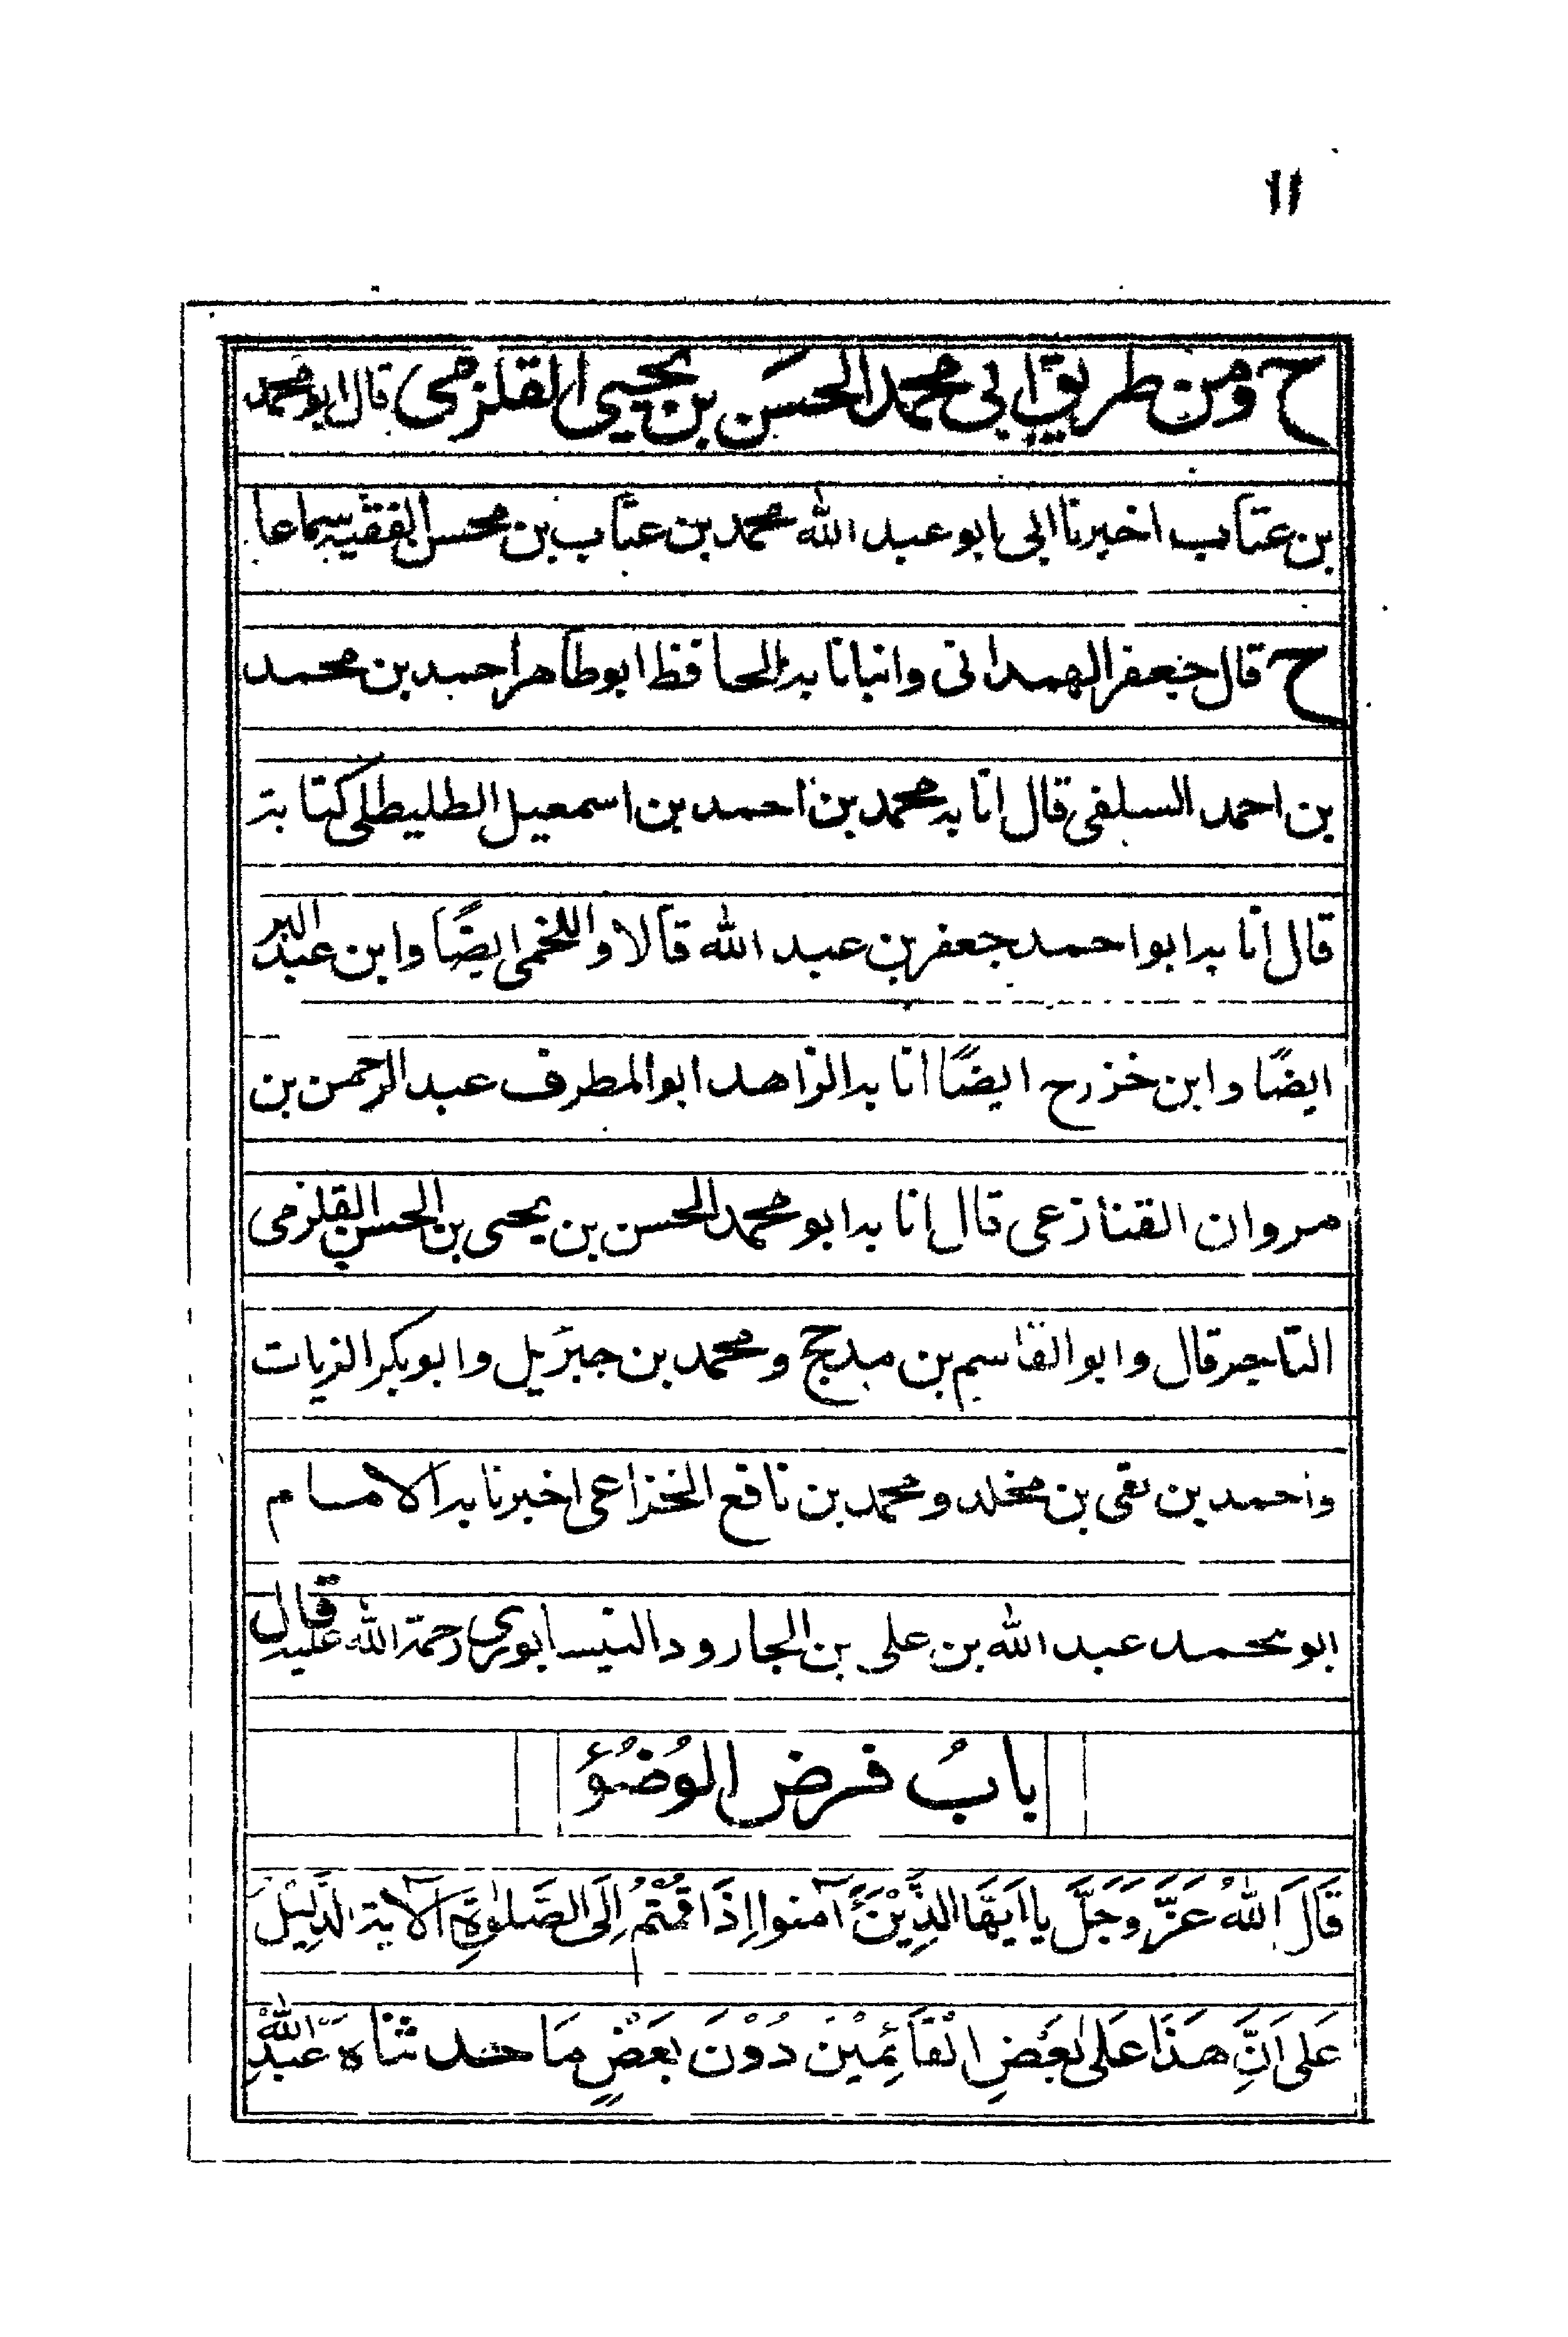 ١١
ح ومن طريق ابي محمد الحسن بن يحيى القلزمى قال ابو محمد
بن عتاب اخبرنا ابى ابو عبد الله محمد بن عتاب بن محسن الفقيه سماعا
ح قال جعفر الهمدانى وانبانا به الحافظ ابو طاهر احمد بن محمد
بن احمد السلفى قال انا به محمد بن احمد بن اسمعيل الطليطلى كتابة
قال انا به ابو احمد جعفر بن عبد الله قالا واللخمى ايضًا وابن عبد البر
ايضًا وابن خزرج ايضًا انا به الزاهد ابو المطرف عبد الرحمن بن
مروان القنازعى قال انا به ابو محمد الحسن بن يحيى بن الحسن القلزمى
قال وابو القاسم بن مدحج ومحمد بن جبرئيل وابو بكر الزيات
واحمد بن بقى بن مخلد ومحمد بن نافع الخزاعى اخبرنا به الامام
ابو محمد عبد الله بن على بن الجارود النيسابورى رحمة الله عليه قال
بابُ فرض الوُضُوْءُ
قَالَ اللّٰهُ عَزَّ وَجَلَّ يا اَيّهَا الذِّيْنَ آمنوا اِذَا قُمْتُمْ اِلَى الصَّلٰوةِ الآية الدَّلِيْلُ
عَلى اَنَّ هٰذَا عَلى بَعْضِ الْقَائِمِيْنَ دُوْنَ بَعْضٍ مَا حدثناه عَبْدُ اللهِ